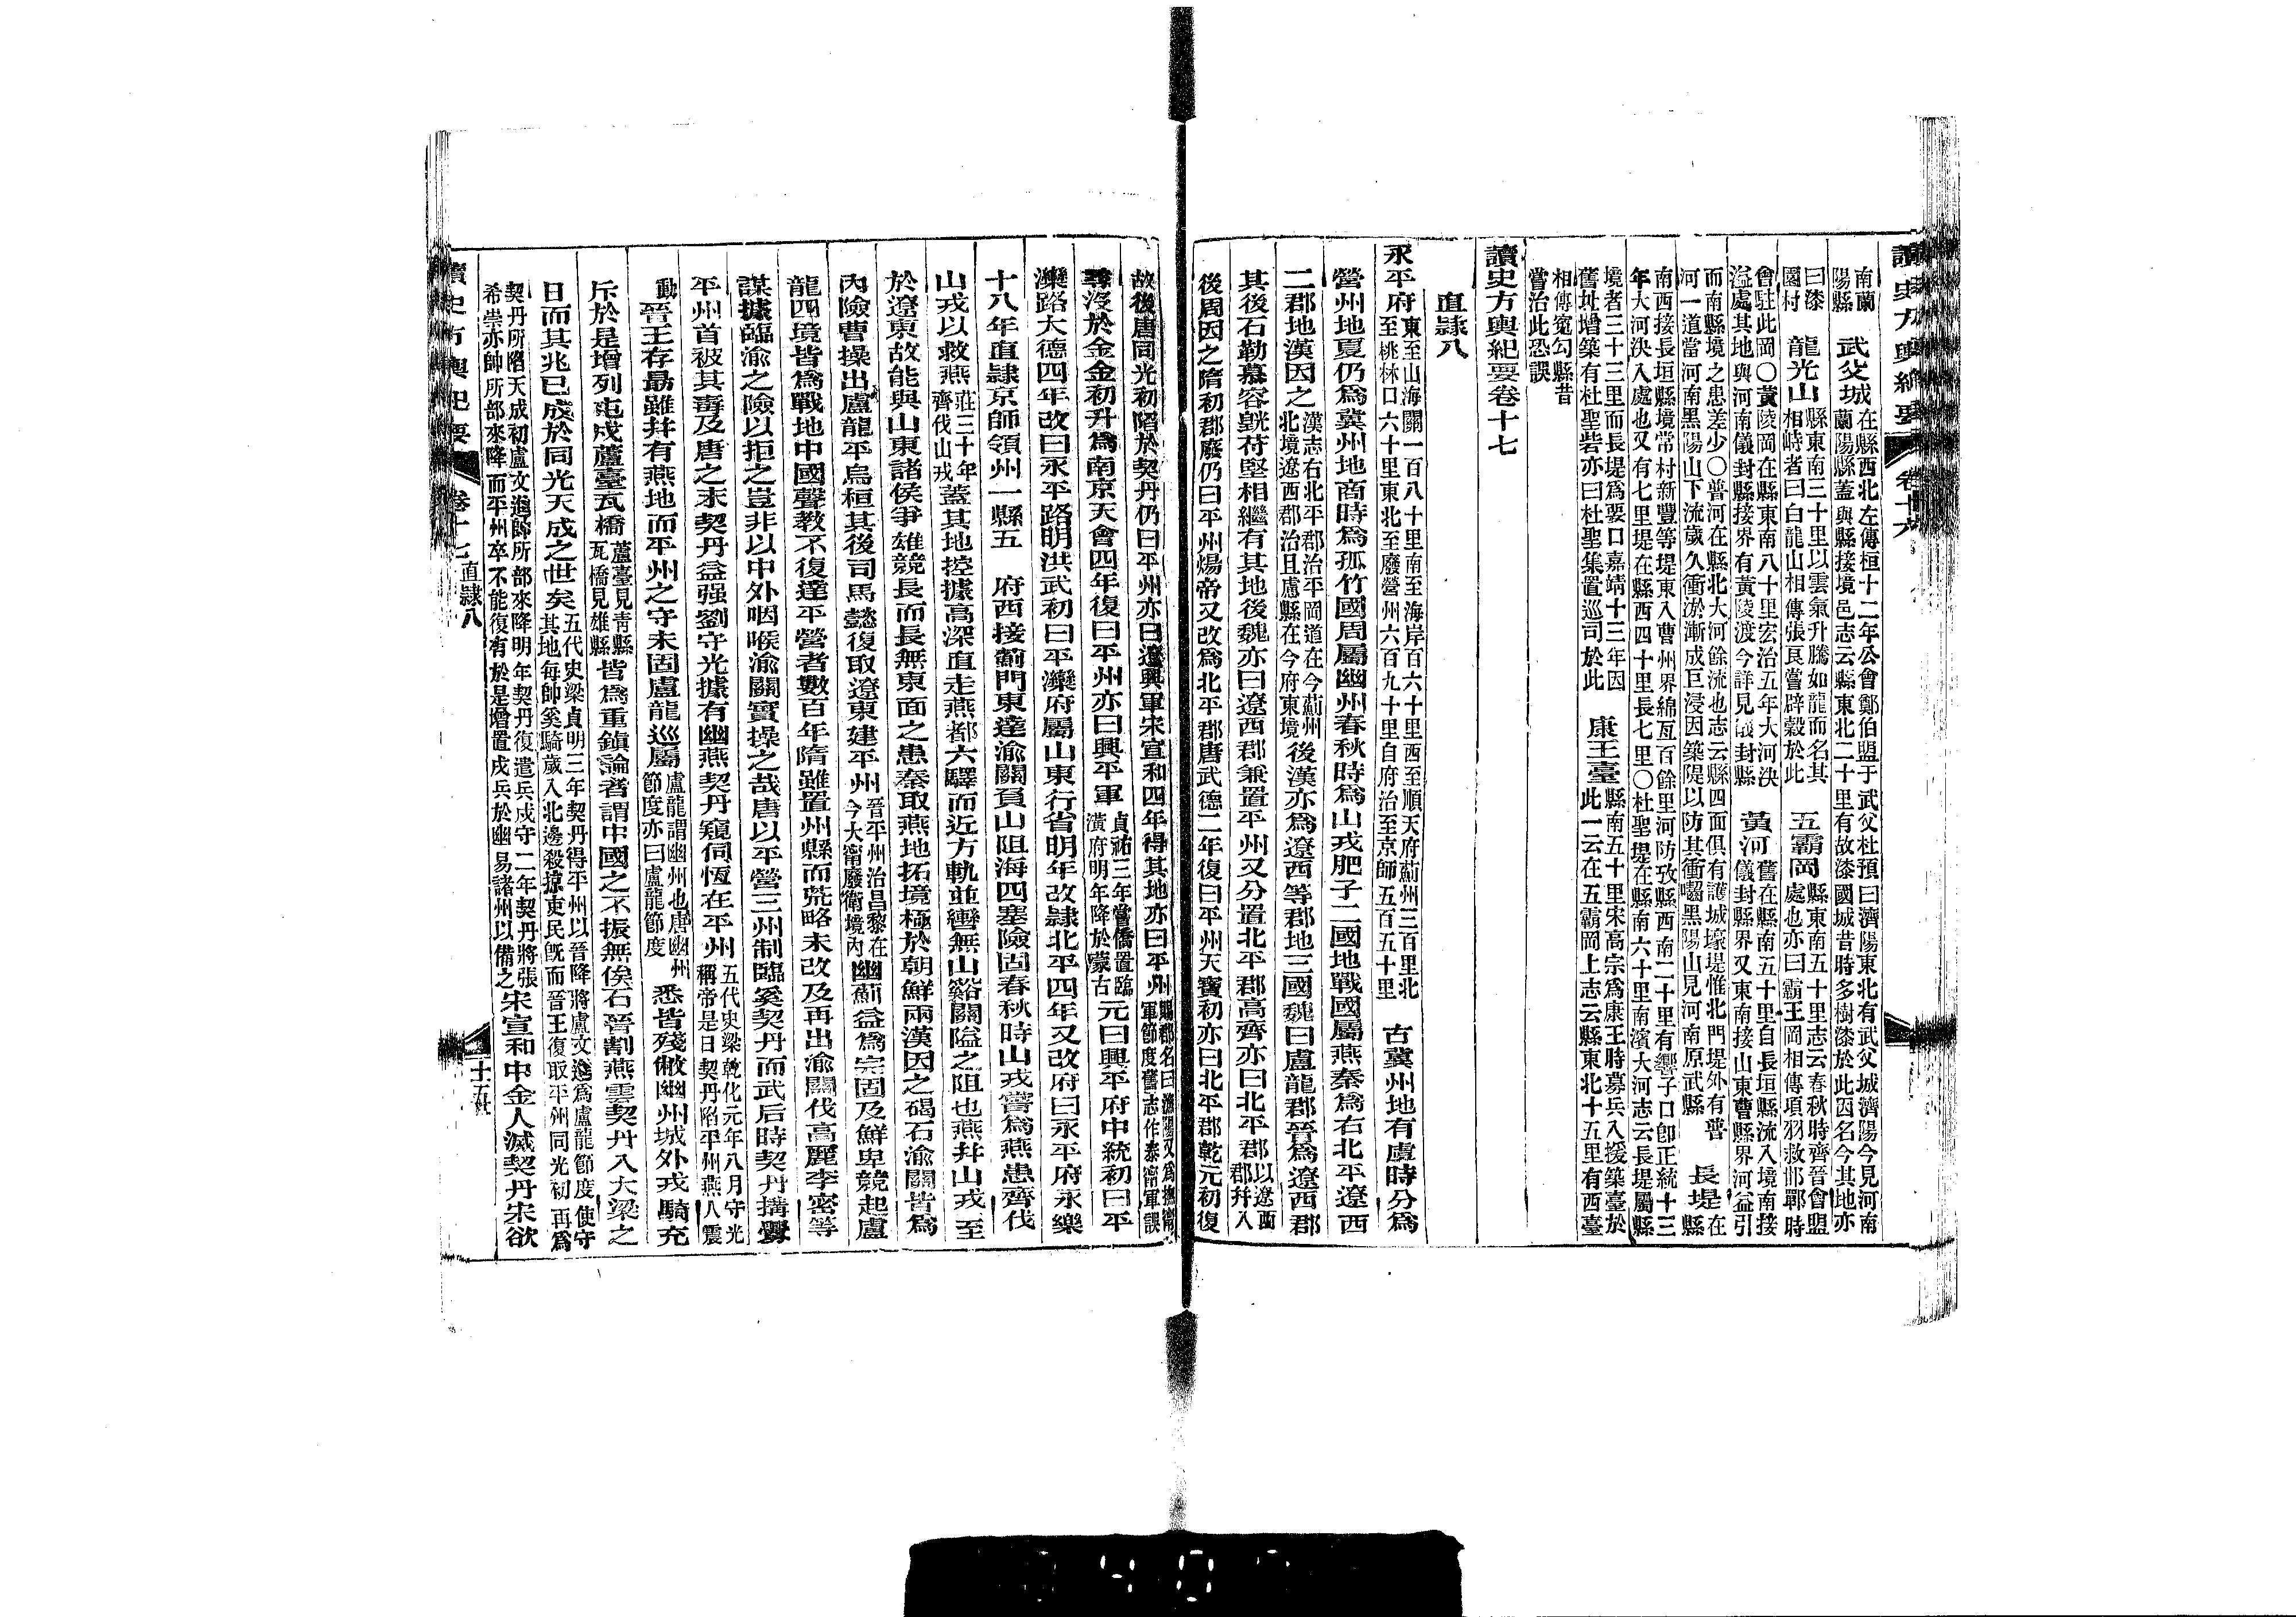 讀史方輿紀要 卷十六
南蘭陽縣 武父城 在縣西北左傳桓十二年公會鄭伯盟于武父杜預曰濟陽東北有武父城濟陽今見河南蘭陽縣蓋與縣接境邑志云縣東北二十里有故漆國城昔時多樹漆於此因名今其地亦
曰漆園村 龍光山 縣東南三十里以雲氣升騰如龍而名其相峙者曰白龍山相傳張良嘗辟穀於此 五霸岡 縣東南五十里志云春秋時齊晉會盟處也亦曰霸王岡相傳項羽救邯鄲時
會駐此岡〇黃陵岡在縣東南八十里宏治五年大河決溢處其地與河南儀封縣接界有黃陵渡今詳見儀封縣 黃河 舊在縣南五十里自長垣縣流入境南接儀封縣界又東南接山東曹縣界河益引
而南縣境之患差少〇普河在縣北大河餘流也志云縣四面俱有護城壕堤惟北門堤外有普河一道當河南黑陽山下流歲久衝淤漸成巨浸因築隄以防其衝囓黑陽山見河南原武縣 長堤 在縣
南西接長垣縣境常村新豐等堤東入曹州界綿亙百餘里河防攷縣西南二十里有響子口卽正統十三年大河決入處也又有七里堤在縣西四十里長七里〇杜聖堤在縣南六十里南濱大河志云長堤屬縣
境者三十三里而長堤爲要口嘉靖十三年因舊址增築有杜聖砦亦曰杜聖集置巡司於此 康王臺 縣南五十里宋高宗爲康王時募兵入援築臺於此一云在五霸岡上志云縣東北十五里有西臺
相傳寃句縣昔嘗治此恐誤
讀史方輿紀要卷十七
直隸八
永平府 東至山海關一百八十里南至海岸百六十里西至順天府薊州三百里北至桃林口六十里東北至廢營州六百九十里自府治至京師五百五十里 古冀州地有虞時分爲
營州地夏仍爲冀州地商時爲孤竹國周屬幽州春秋時爲山戎肥子二國地戰國屬燕秦爲右北平遼西
二郡地漢因之 漢志右北平郡治平岡道在今薊州北境遼西郡治且慮縣在今府東境 後漢亦爲遼西等郡地三國魏曰盧龍郡晉爲遼西郡
其後石勒慕容皝苻堅相繼有其地後魏亦曰遼西郡兼置平州又分置北平郡高齊亦曰北平郡 以遼西郡幷入
後周因之隋初郡廢仍曰平州煬帝又改爲北平郡唐武德二年復曰平州天寶初亦曰北平郡乾元初復
故後唐同光初陷於契丹仍曰平州亦曰遼興軍宋宣和四年得其地亦曰平州 賜郡名曰漁陽又爲撫寧軍節度舊志作泰寧軍誤
尋沒於金金初升爲南京天會四年復曰平州亦曰興平軍 貞祐三年嘗僑置臨潢府明年降於蒙古 元曰興平府中統初曰平
灤路大德四年改曰永平路明洪武初曰平灤府屬山東行省明年改隸北平四年又改府曰永平府永樂
十八年直隸京師領州一縣五 府西接薊門東達渝關負山阻海四塞險固春秋時山戎嘗爲燕患齊伐
山戎以救燕 莊三十年齊伐山戎 蓋其地控據高深直走燕都六驛而近方軌並轡無山谿關隘之阻也燕幷山戎至
於遼東故能與山東諸侯爭雄競長而長無東面之患秦取燕地拓境極於朝鮮兩漢因之碣石渝關皆爲
內險曹操出盧龍平烏桓其後司馬懿復取遼東建平州 晉平州治昌黎在今大甯廢衛境內 幽薊益爲完固及鮮卑競起盧
龍四境皆爲戰地中國聲教不復達平營者數百年隋雖置州縣而荒略未改及再出渝關伐高麗李密等
謀據臨渝之險以拒之豈非以中外咽喉渝關實操之哉唐以平營三州制臨奚契丹而武后時契丹搆釁
平州首被其毒及唐之末契丹益强劉守光據有幽燕契丹窺伺恆在平州 五代史梁乾化元年八月守光稱帝是日契丹陷平州燕人震
動 晉王存勗雖幷有燕地而平州之守未固盧龍巡屬 盧龍謂幽州也唐幽州節度亦曰盧龍節度 悉皆殘敝幽州城外戎騎充
斥於是增列屯戍蘆臺瓦橋 蘆臺見靑縣瓦橋見雄縣 皆爲重鎮論者謂中國之不振無俟石晉割燕雲契丹入大梁之
日而其兆已成於同光天成之世矣 五代史梁貞明三年契丹得平州以晉降將盧文進爲盧龍節度使守其地每帥奚騎歲入北邊殺掠吏民旣而晉王復取平州同光初再爲
契丹所陷天成初盧文進帥所部來降明年契丹復遣兵戍守二年契丹將張希崇亦帥所部來降而平州卒不能復有於是增置戍兵於幽易諸州以備之 宋宣和中金人滅契丹宋欲
讀史方輿紀要 卷十七 直隸八